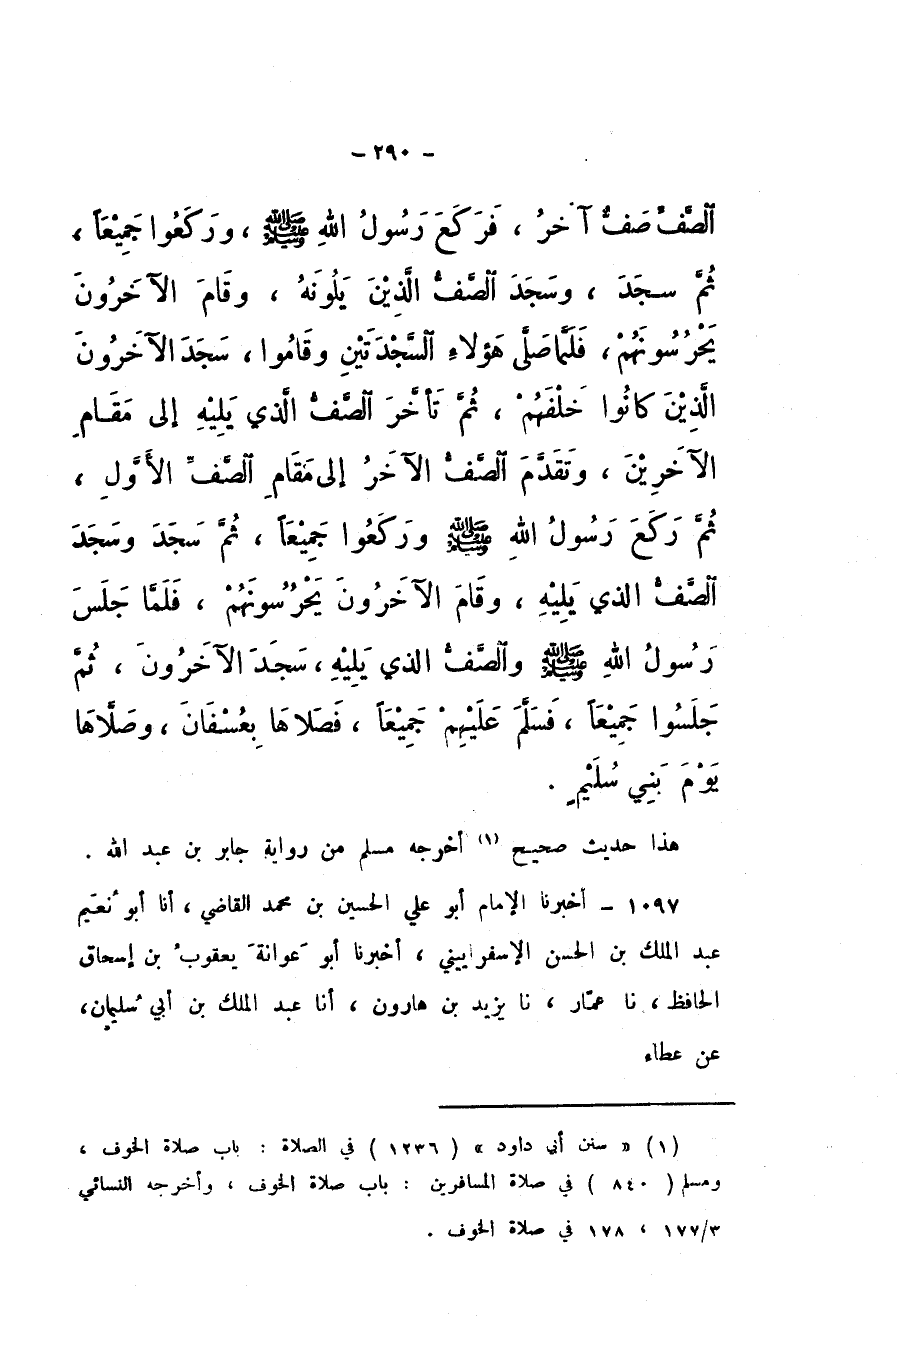 - ٢٩٠ -
ٱلصَّفِّ صَفٌّ آخَرُ ، فَرَكَعَ رَسُولُ اللهِ ﷺ ، ورَكَعُوا جَمِيْعَاً ،
ثُمَّ سجَدَ ، وسَجَدَ ٱلصَّفُّ الَّذِيْنَ يَلُونَهُ ، وقَامَ الآخَرُونَ
يَحْرُسُونَهُمْ ، فَلَمَّا صَلَّى هَؤلاءِ ٱلسَّجْدَتَيْنِ وقَامُوا ، سَجَدَ الآخَرُونَ
الَّذِيْنَ كانُوا خَلْفَهُمْ ، ثُمَّ تَأَخَّرَ ٱلصَّفُّ الَّذي يَلِيْهِ إلى مَقَامِ
الآخَرِيْنَ ، وتَقَدَّمَ ٱلصَّفُّ الآخَرُ إلى مَقَامِ ٱلصَّفِّ الأَوَّلِ ،
ثُمَّ رَكَعَ رَسُولُ اللهِ ﷺ ورَكَعُوا جَمِيْعَاً ، ثُمَّ سَجَدَ وسَجَدَ
ٱلصَّفُّ الذي يَلِيْهِ ، وقَامَ الآخَرُونَ يَحْرُسُونَهُمْ ، فَلَمَّا جَلَسَ
رَسُولُ اللهِ ﷺ وٱلصَّفُّ الذي يَلِيْهِ ، سَجَدَ الآخَرُونَ ، ثُمَّ
جَلَسُوا جَمِيْعَاً ، فَسَلَّمَ عَلَيْهِمْ جَمِيْعَاً ، فَصَلاهَا بِعُسْفَانَ ، وصَلَّاهَا
يَوْمَ بَنِي سُلَيْمٍ .
هذا حديث صحيح (١) أخرجه مسلم من رواية جابر بن عبد الله .
١٠٩٧ - أخبرنا الإمام أبو علي الحسين بن محمد القاضي ، أنا أبو نُعَيم
عبد الملك بن الحسن الإسفراييني ، أخبرنا أبو عَوانةَ يعقوبُ بن إسحاق
الحافظ ، نا عمّار ، نا يزيد بن هارون ، أنا عبد الملك بن أبي سُليمان ،
عن عطاء
(١) « سنن أبي داود » ( ١٢٣٦ ) في الصلاة : باب صلاة الخوف ،
ومسلم ( ٨٤٠ ) في صلاة المسافرين : باب صلاة الخوف ، وأخرجه النسائي
١٧٧/٣ ، ١٧٨ في صلاة الخوف .